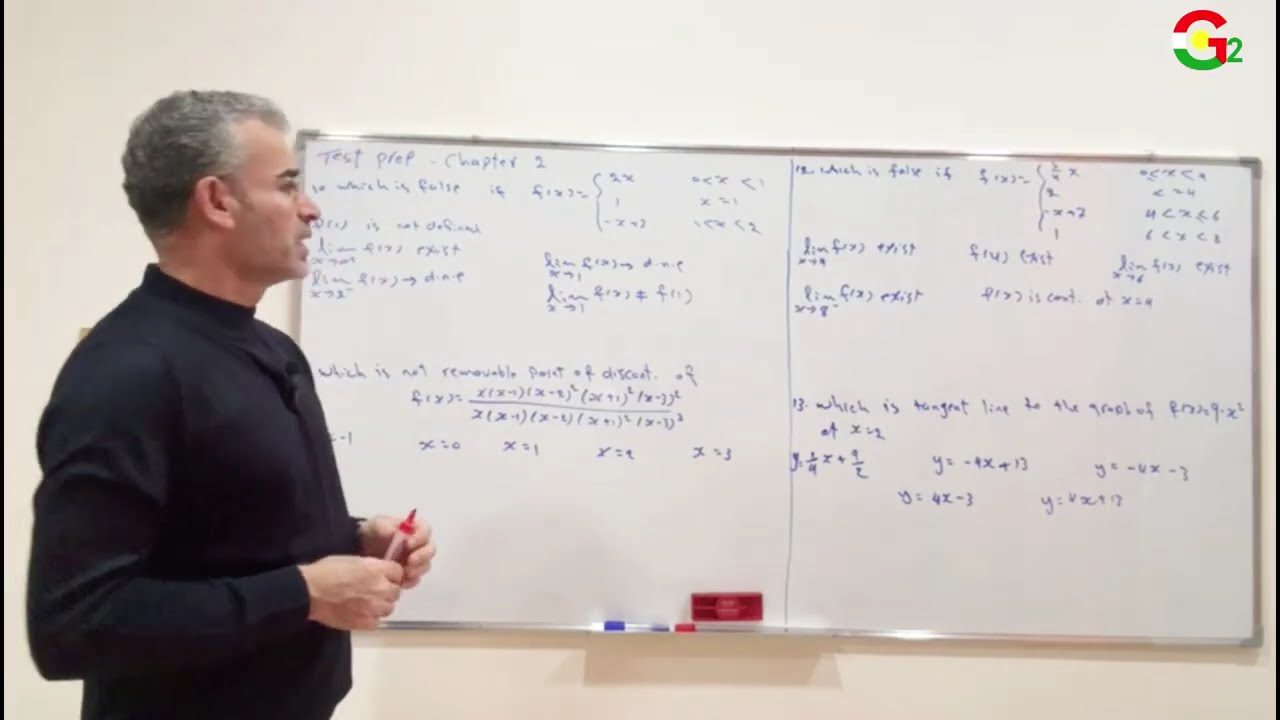 Test prep - Chapter 2
10 which is false if f(x)= { 2x 0<x<1
1 x=1
-x+3 1<x<2
f(1) is not defined
lim x→0+ f(x) exist lim x→1 f(x) → d.n.e
lim x→2- f(x) → d.n.e lim x→1 f(x) ≠ f(1)
which is not removable point of discont. of
f(x)= x(x-1)(x-2)²(x+1)²(x-3)²
x(x-1)(x-2)(x+1)²(x-3)³
=-1 x=0 x=1 x=2 x=3
12. which is false if f(x)= { x 0<x<4
2 x=4
6<x<8
1
lim x→4 f(x) exist f(4) exist lim x→6 f(x) exist
lim x→8- f(x) exist f(x) is cont. at x=4
13. which is tangent line to the graph of f(x)=9-x²
at x=2
y=1/4 x+9/2 y=-4x+13 y=-4x-3
y=4x-3 y=4x+13
G2